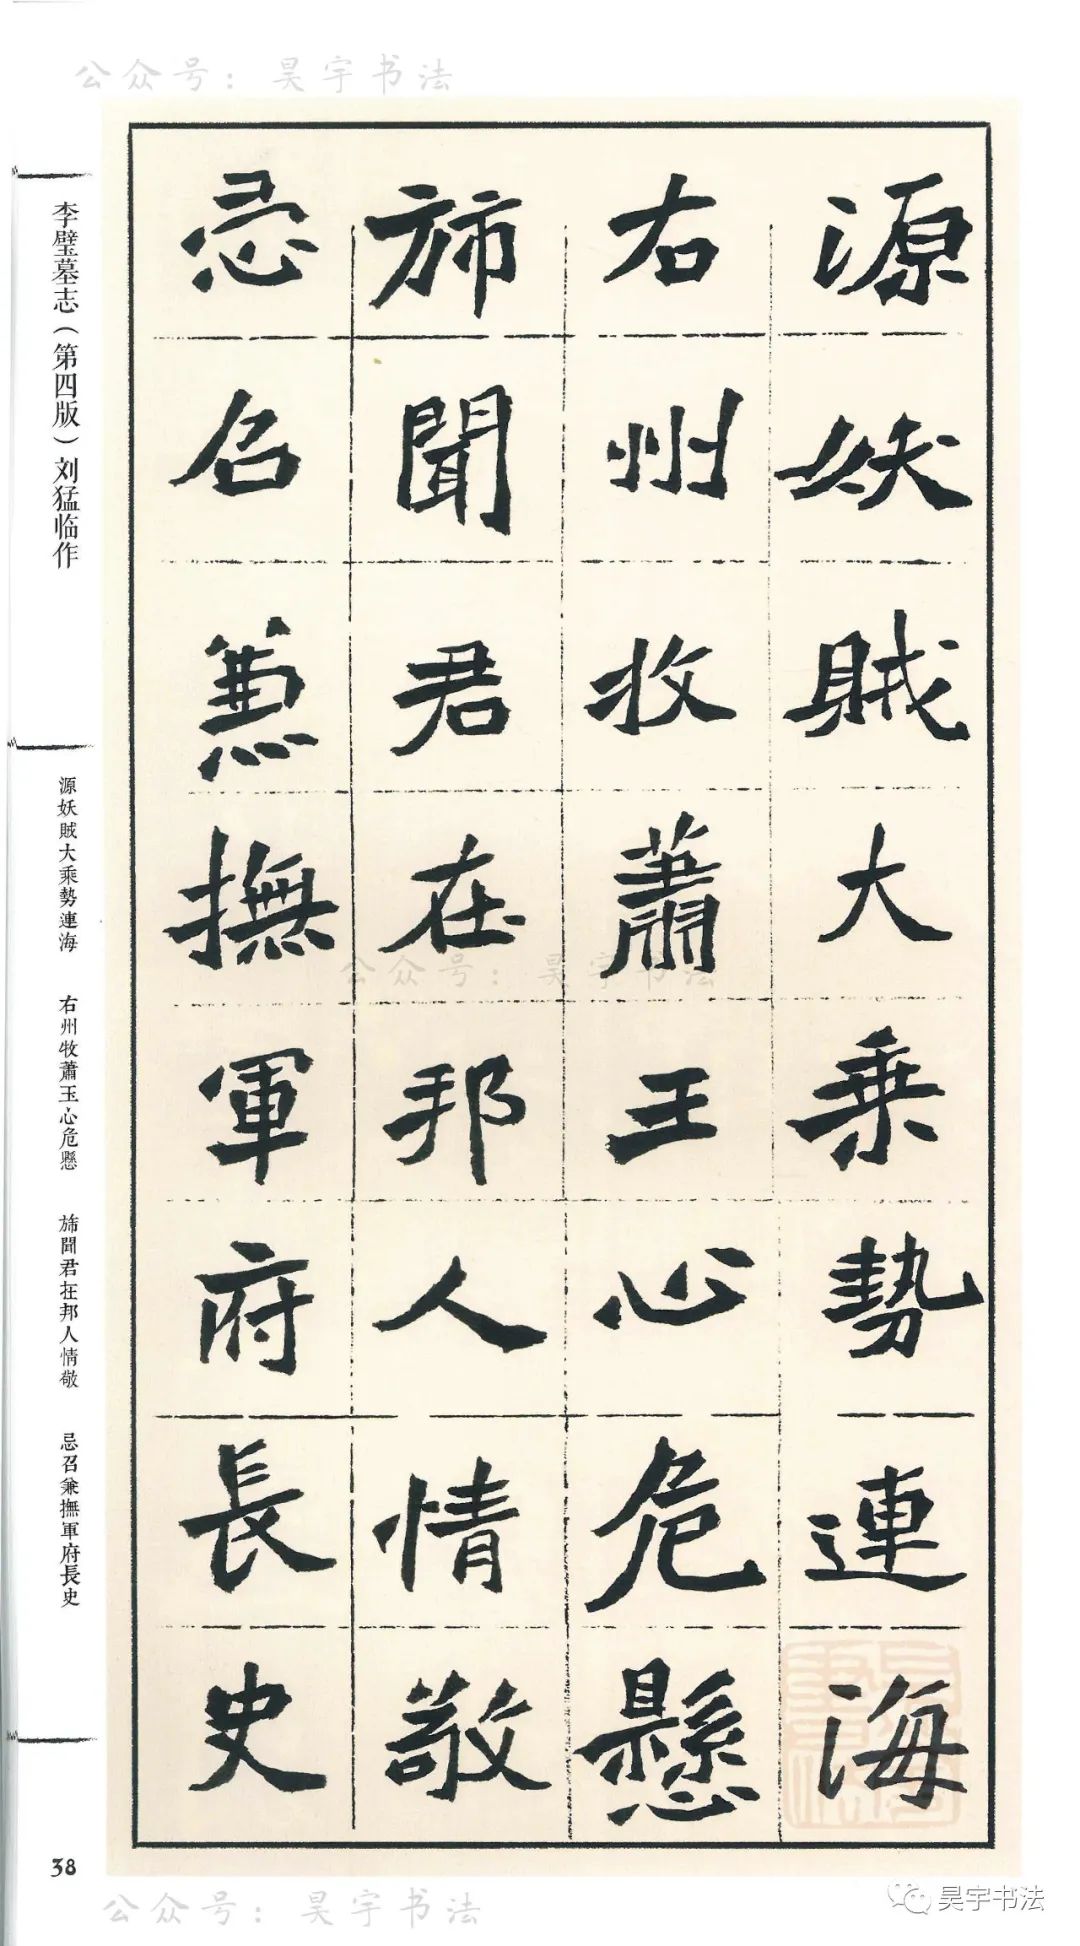 公众号：昊宇书法
源妖賊大乘勢連海
右州牧蕭王心危懸
斾聞君在邦人情敬
忌召兼撫軍府長史
李璧墓志（第四版）刘猛临作
源妖賊大乘勢連海
右州牧蕭玉心危懸
斾聞君在邦人情敬
忌召兼撫軍府長史
38
公众号：昊宇书法
公众号：昊宇书法
昊宇书法